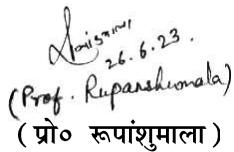 26.6.23.
(Prof. Rupanshumala)
( प्रो० रूपांशुमाला )